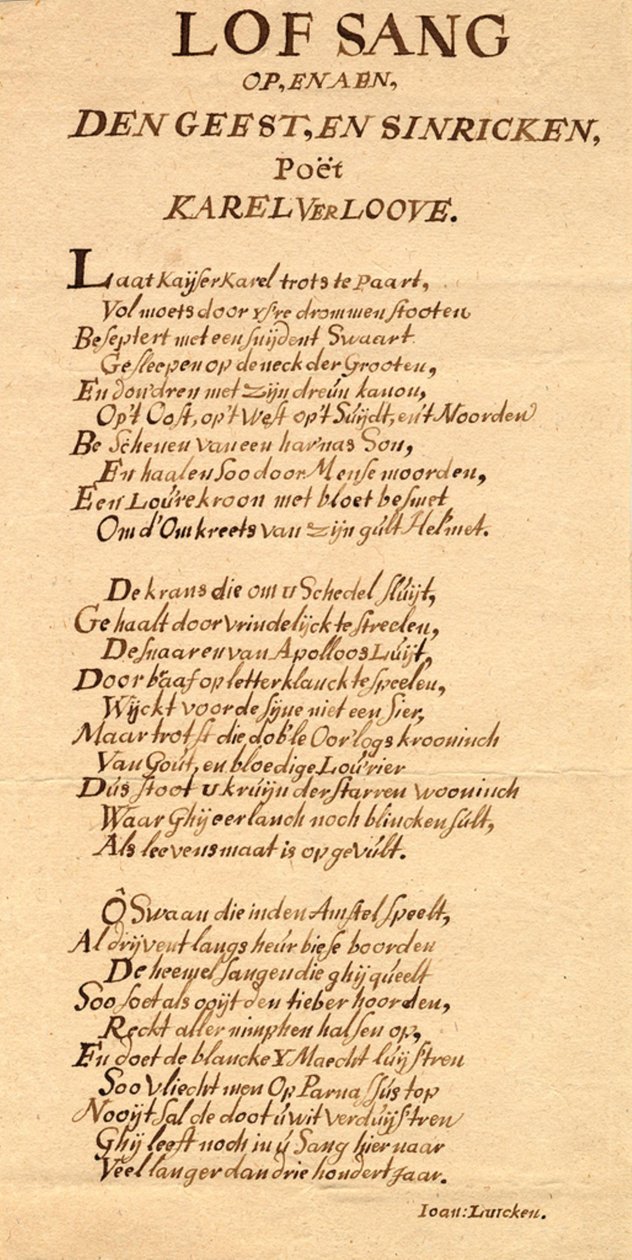 LOF SANG
OP, EN AEN,
DEN GEEST, EN SINRICKEN,
Poët
KAREL VERLOOVE.
Laat Kaijser Karel trots te Paart,
Vol moets door ys're drommen stooten
Beseptert met een snijdent Swaart
Gesleepen op de neck der Grooten,
En dond'ren met zijn dreún kanon,
Op't Oost, op't West op't Súijdt, en't Noorden
Be Schenen van een har'nas Son,
En haalen soo door Mense moorden,
Een Loúre kroon met bloet besmet
Om d'Omkreets van zijn gúlt Hel'met.
De krans die om u Schedel slúijt,
Gehaalt door vrindelijck te streelen,
De snaaren van Apolloos Lúijt,
Door b'aaf op letterklanck te speelen,
Wijckt voor de sijne niet een sier,
Maar trotst die dob'le Oor'logs krooninch
Van Goút, en bloedige Loúrier
Dús stoot u krúijn der starren wooninch
Waar Ghij eer lanch noch blincken súlt,
Als leevens maat is op gevúlt.
Ô Swaan die in den Amstel speelt,
Al drijvent langs heúr biese boorden
De heemel sangen die ghij qúeelt
Soo soet als ooijt den tieber hoorden,
Reckt aller nimphen halsen op,
En doet de blancke Y Maecht lúijst'ren
Soo vliecht men Op Parnassús top
Nooijt sal de doot ú wit verdúijst'ren
Ghij leeft noch in ú Sang hier naar
Veel langer dan drie hondert Jaar.
Ioan: Luicken.